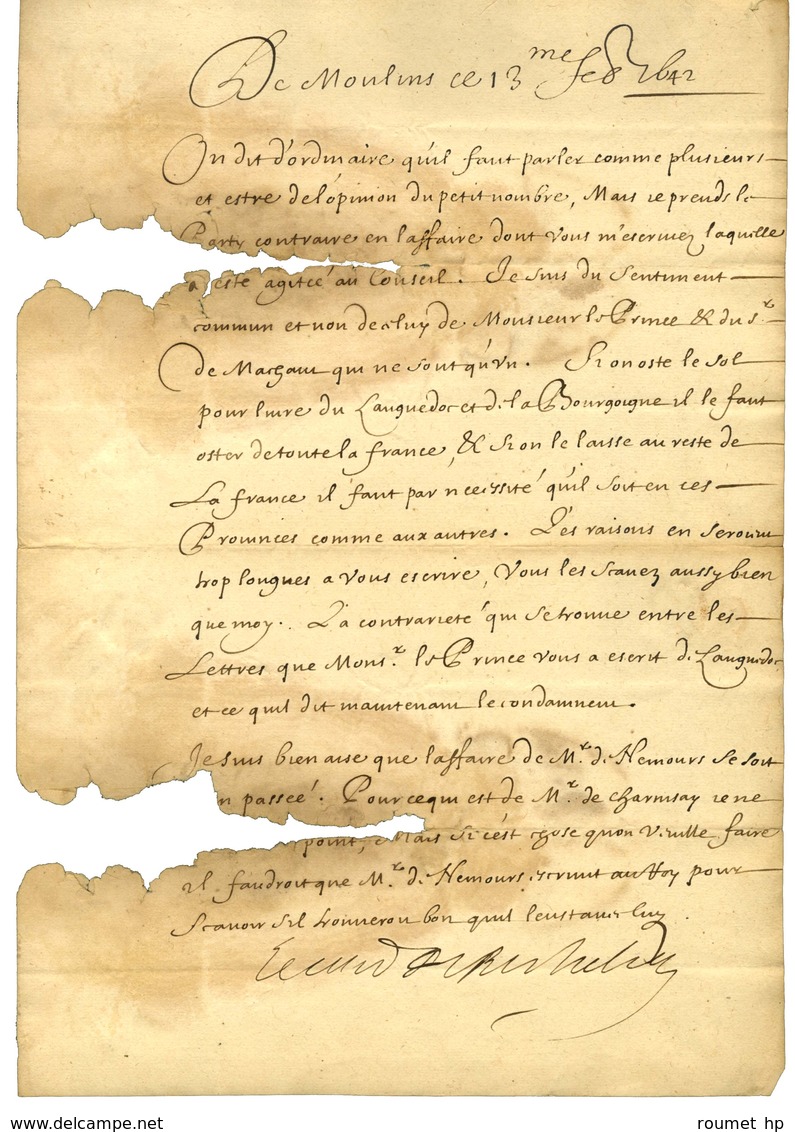 De Moulins ce 13me feb 1642
On dit d'ordinaire qu'il faut parler comme plusieurs
et estre de l'opinion du petit nombre, Mais ie prends le
Party contraire en l'affaire dont vous m'escriuez laquelle
a esté agitée au Conseil. Je suis du Sentiment
commun et non de celuy de Monsieur le Prince & du sr.
de Machaut qui ne sont qu'vn. Si on oste le sol
pour liure du Languedoc et de la Bourgoigne il le faut
oster de toute la france, & si on le laisse au reste de
La france il faut par necessité qu'il soit en ces
Prouinces comme aux autres. Les raisons en seroient
trop longues a vous escrire, vous les scauez aussy bien
que moy. La contrarieté qui se trouue entre les
Lettres que Monsr. le Prince vous a escrit de Languedoc
et ce qu'il dit maintenant le condamnent.
Je suis bien aise que l'affaire de Mr. de Nemours se soit
n passeé. Pour ce qui est de Mr. de charnisay ie ne
point, Mais si c'est chose qu'on veuille faire
il faudroit que Mr. de Nemours escriuit au Roy pour
scauoir s'il trouueroit bon qu'il l'eust auec luy.
Le Card de Richelieu
www.delcampe.net
roumet hp